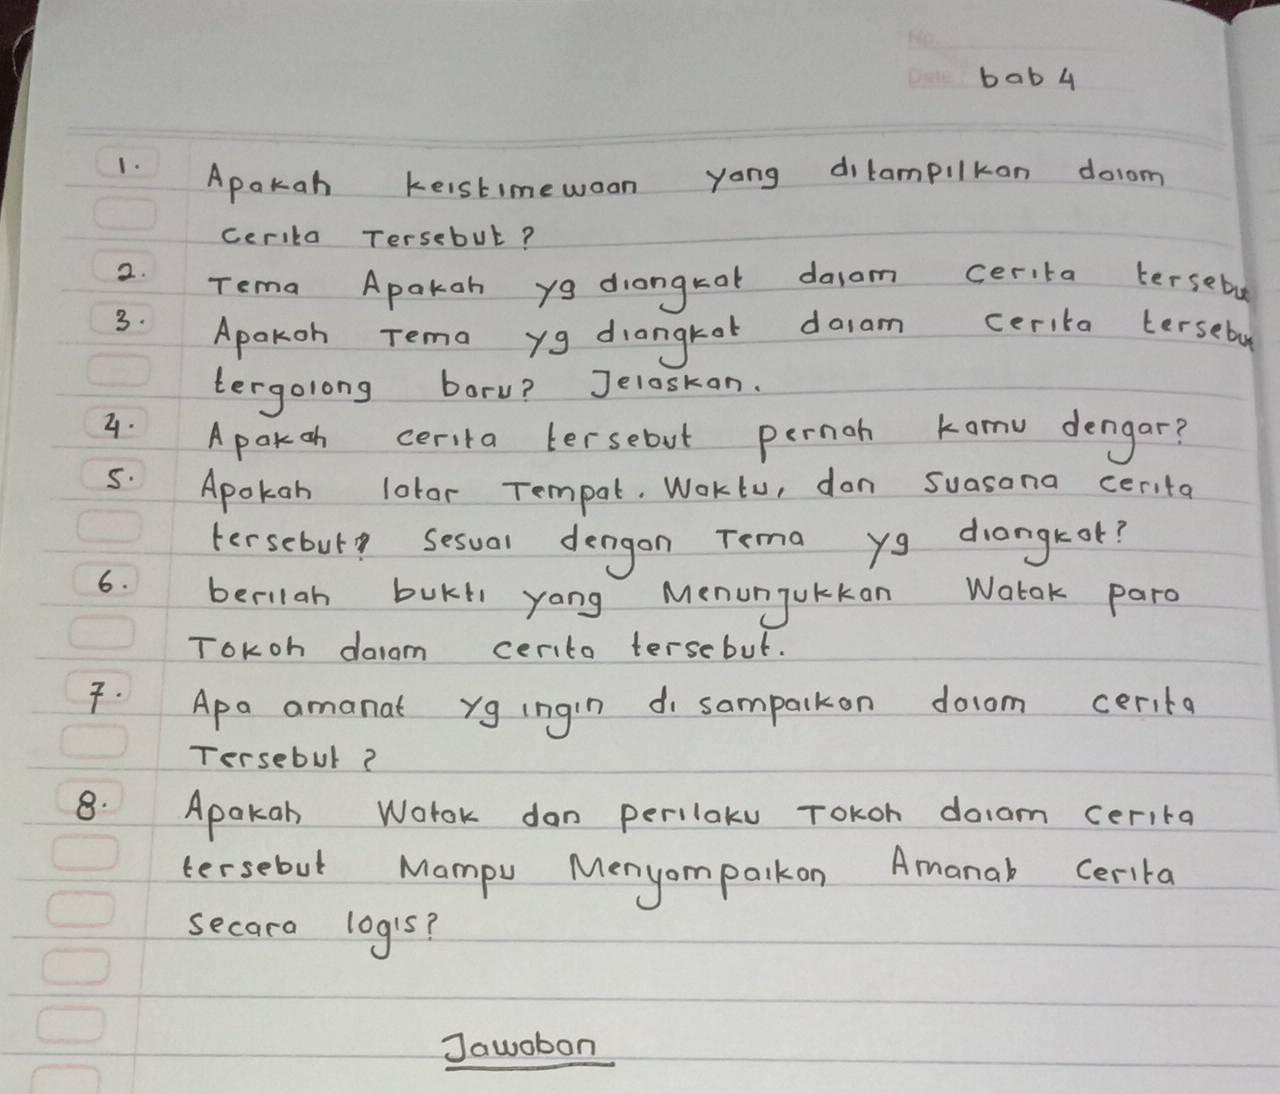 No.
Date: bab 4
1. Apakah keistimewaan yang ditampilkan dalam
cerita Tersebut?
2. Tema Apakah yg diangkat dalam cerita tersebut
3. Apakah Tema yg diangkat dalam cerita tersebut
tergolong baru? Jelaskan.
4. Apakah cerita tersebut pernah kamu dengar?
5. Apakah latar Tempat. Waktu, dan suasana cerita
tersebut? sesuai dengan Tema yg diangkat?
6. berilah bukti yang Menunjukkan Watak para
Tokoh dalam cerita tersebut.
7. Apa amanat yg ingin di sampaikan dalam cerita
Tersebut?
8. Apakah Watak dan perilaku Tokoh dalam cerita
tersebut Mampu Menyampaikan Amanat cerita
secara logis?
Jawaban